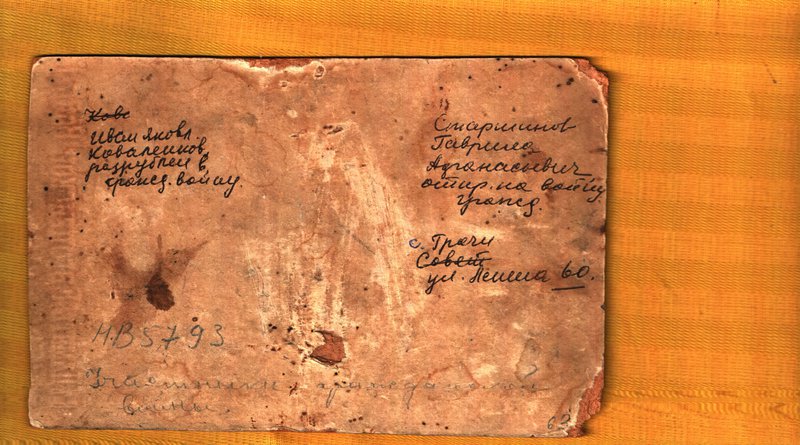 Кове
Иван Яковл.
Коваленков
разрублен в
гражд. войну.
Старшинов
Гаврила
Афанасьевич
отпр. на войну
гражд.
с. Грачи
Совет
ул. Ленина 60.
НВ 5793
Участники гражданской
войны.